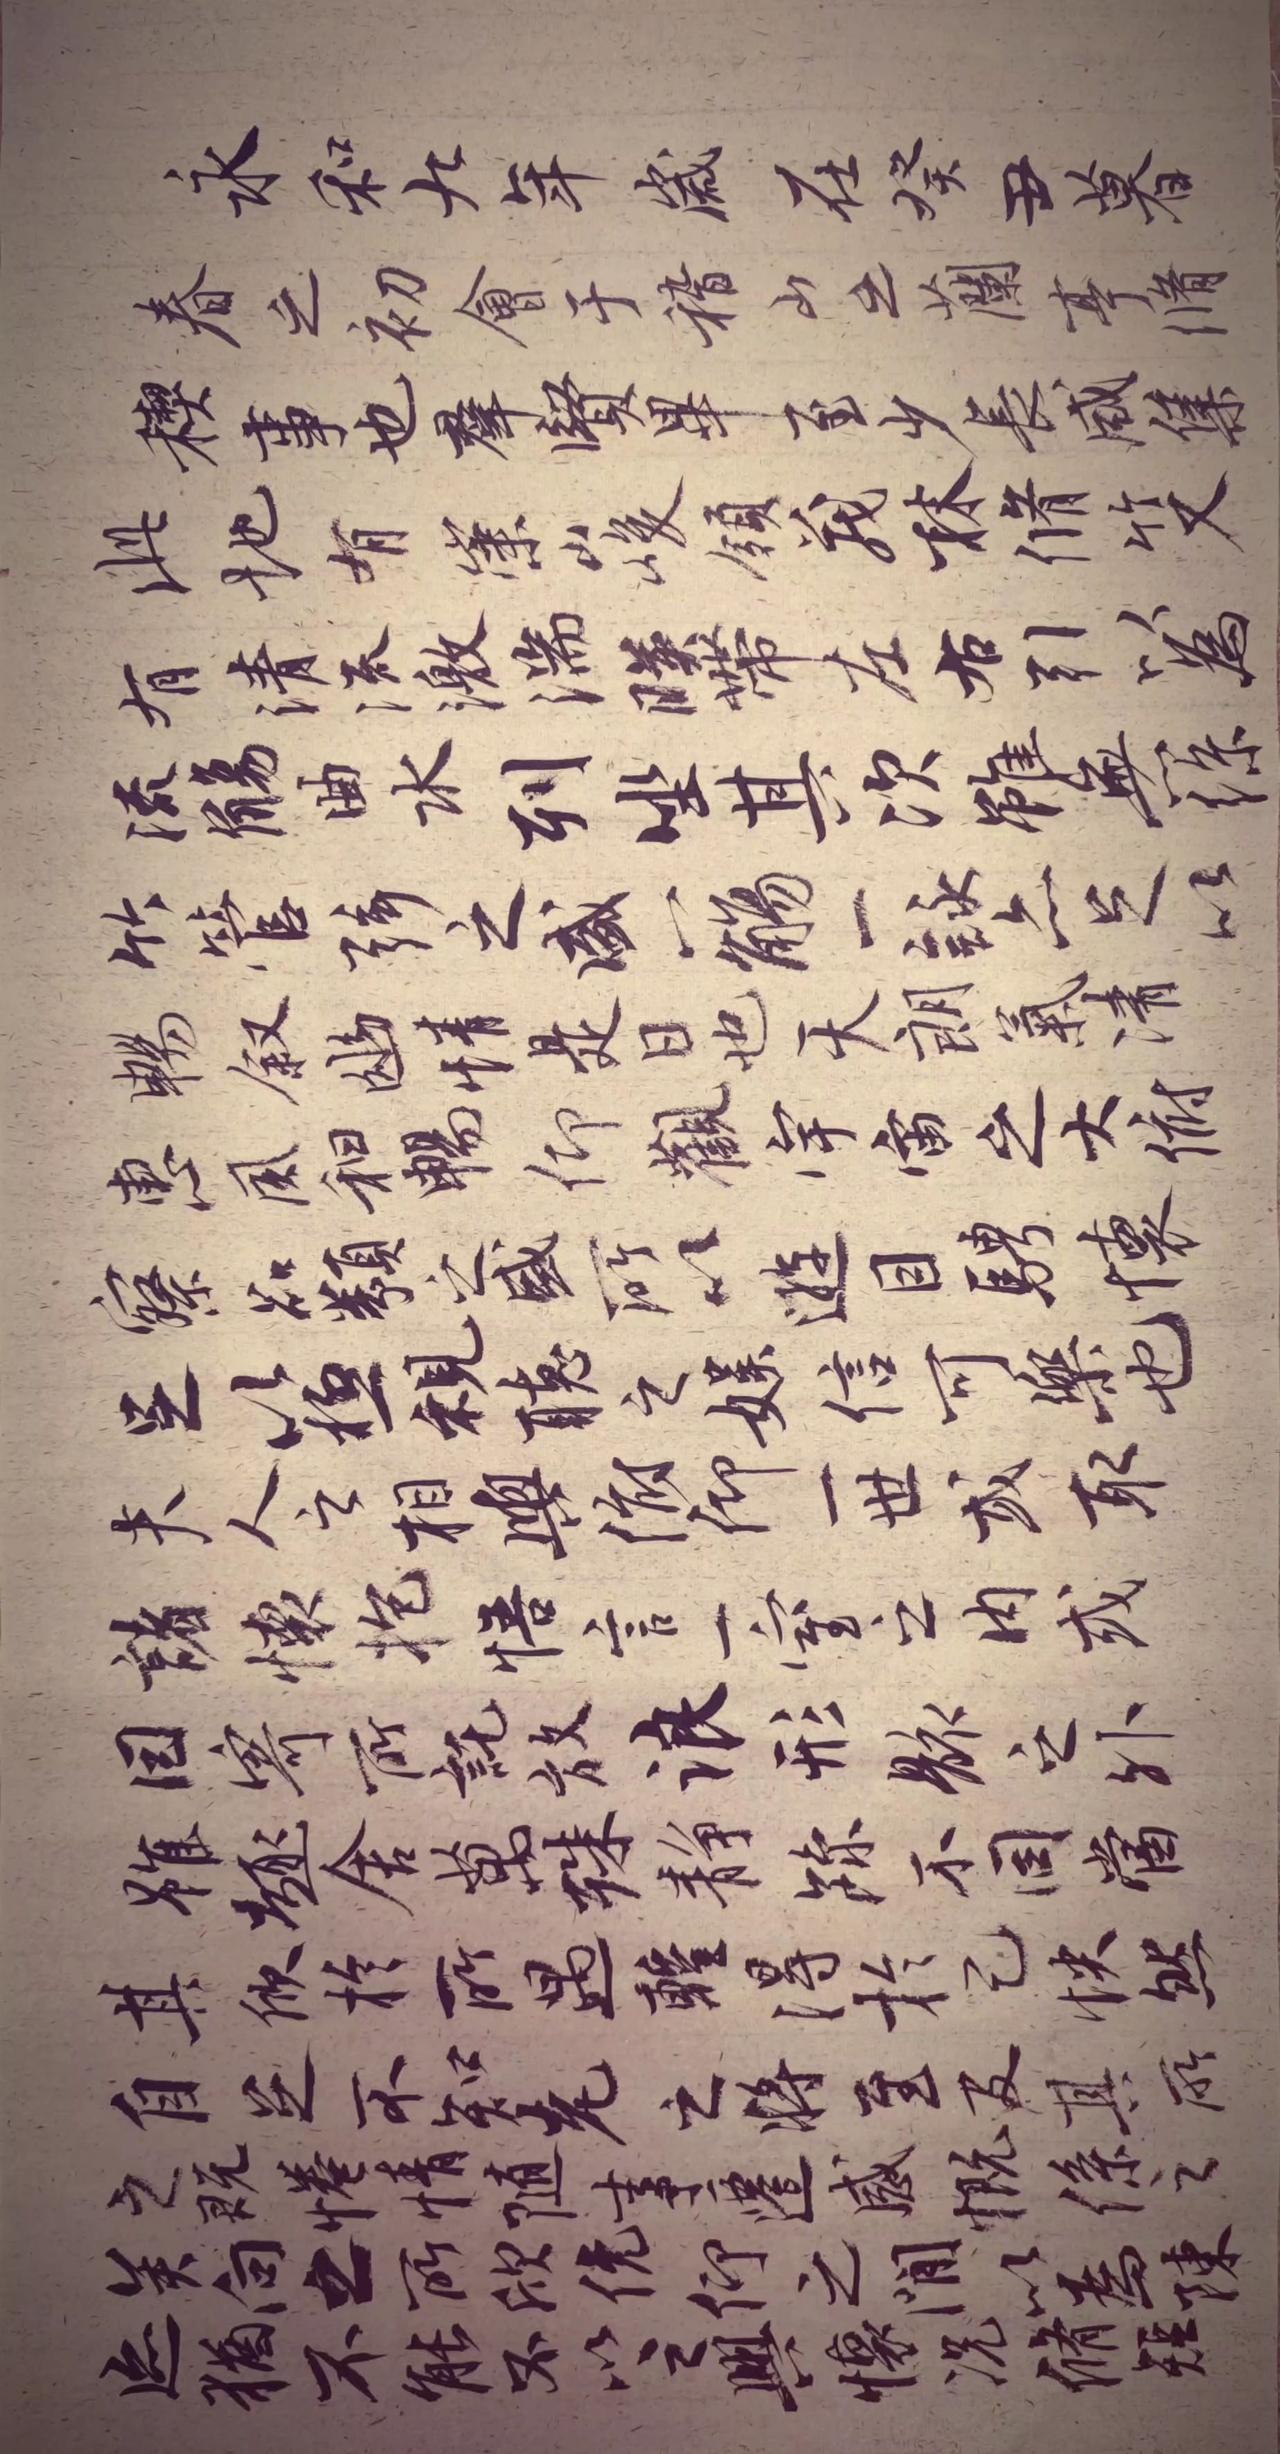 永和九年歲在癸丑暮
春之初會于稽山之蘭亭脩
禊事也群賢畢至少長咸集
此地有崇山峻領茂林脩竹又
有清流激湍暎帶左右引以為
流觴曲水列坐其次雖無絲
竹管弦之盛一觴一詠亦足以
暢叙幽情是日也天朗氣清
惠風和暢仰觀宇宙之大俯
察品類之盛所以遊目騁懷
足以極視聽之娛信可樂也
夫人之相與俯仰一世或取
諸懷抱悟言一室之內或
因寄所託放浪形骸之外
雖趣舍萬殊靜躁不同當
其欣於所遇蹔得於己快然
自足不知老之將至及其所
之既惓情隨事遷感慨係之
矣向之所欣俛仰之間以為陳
迹猶不能不以之興懷況脩短